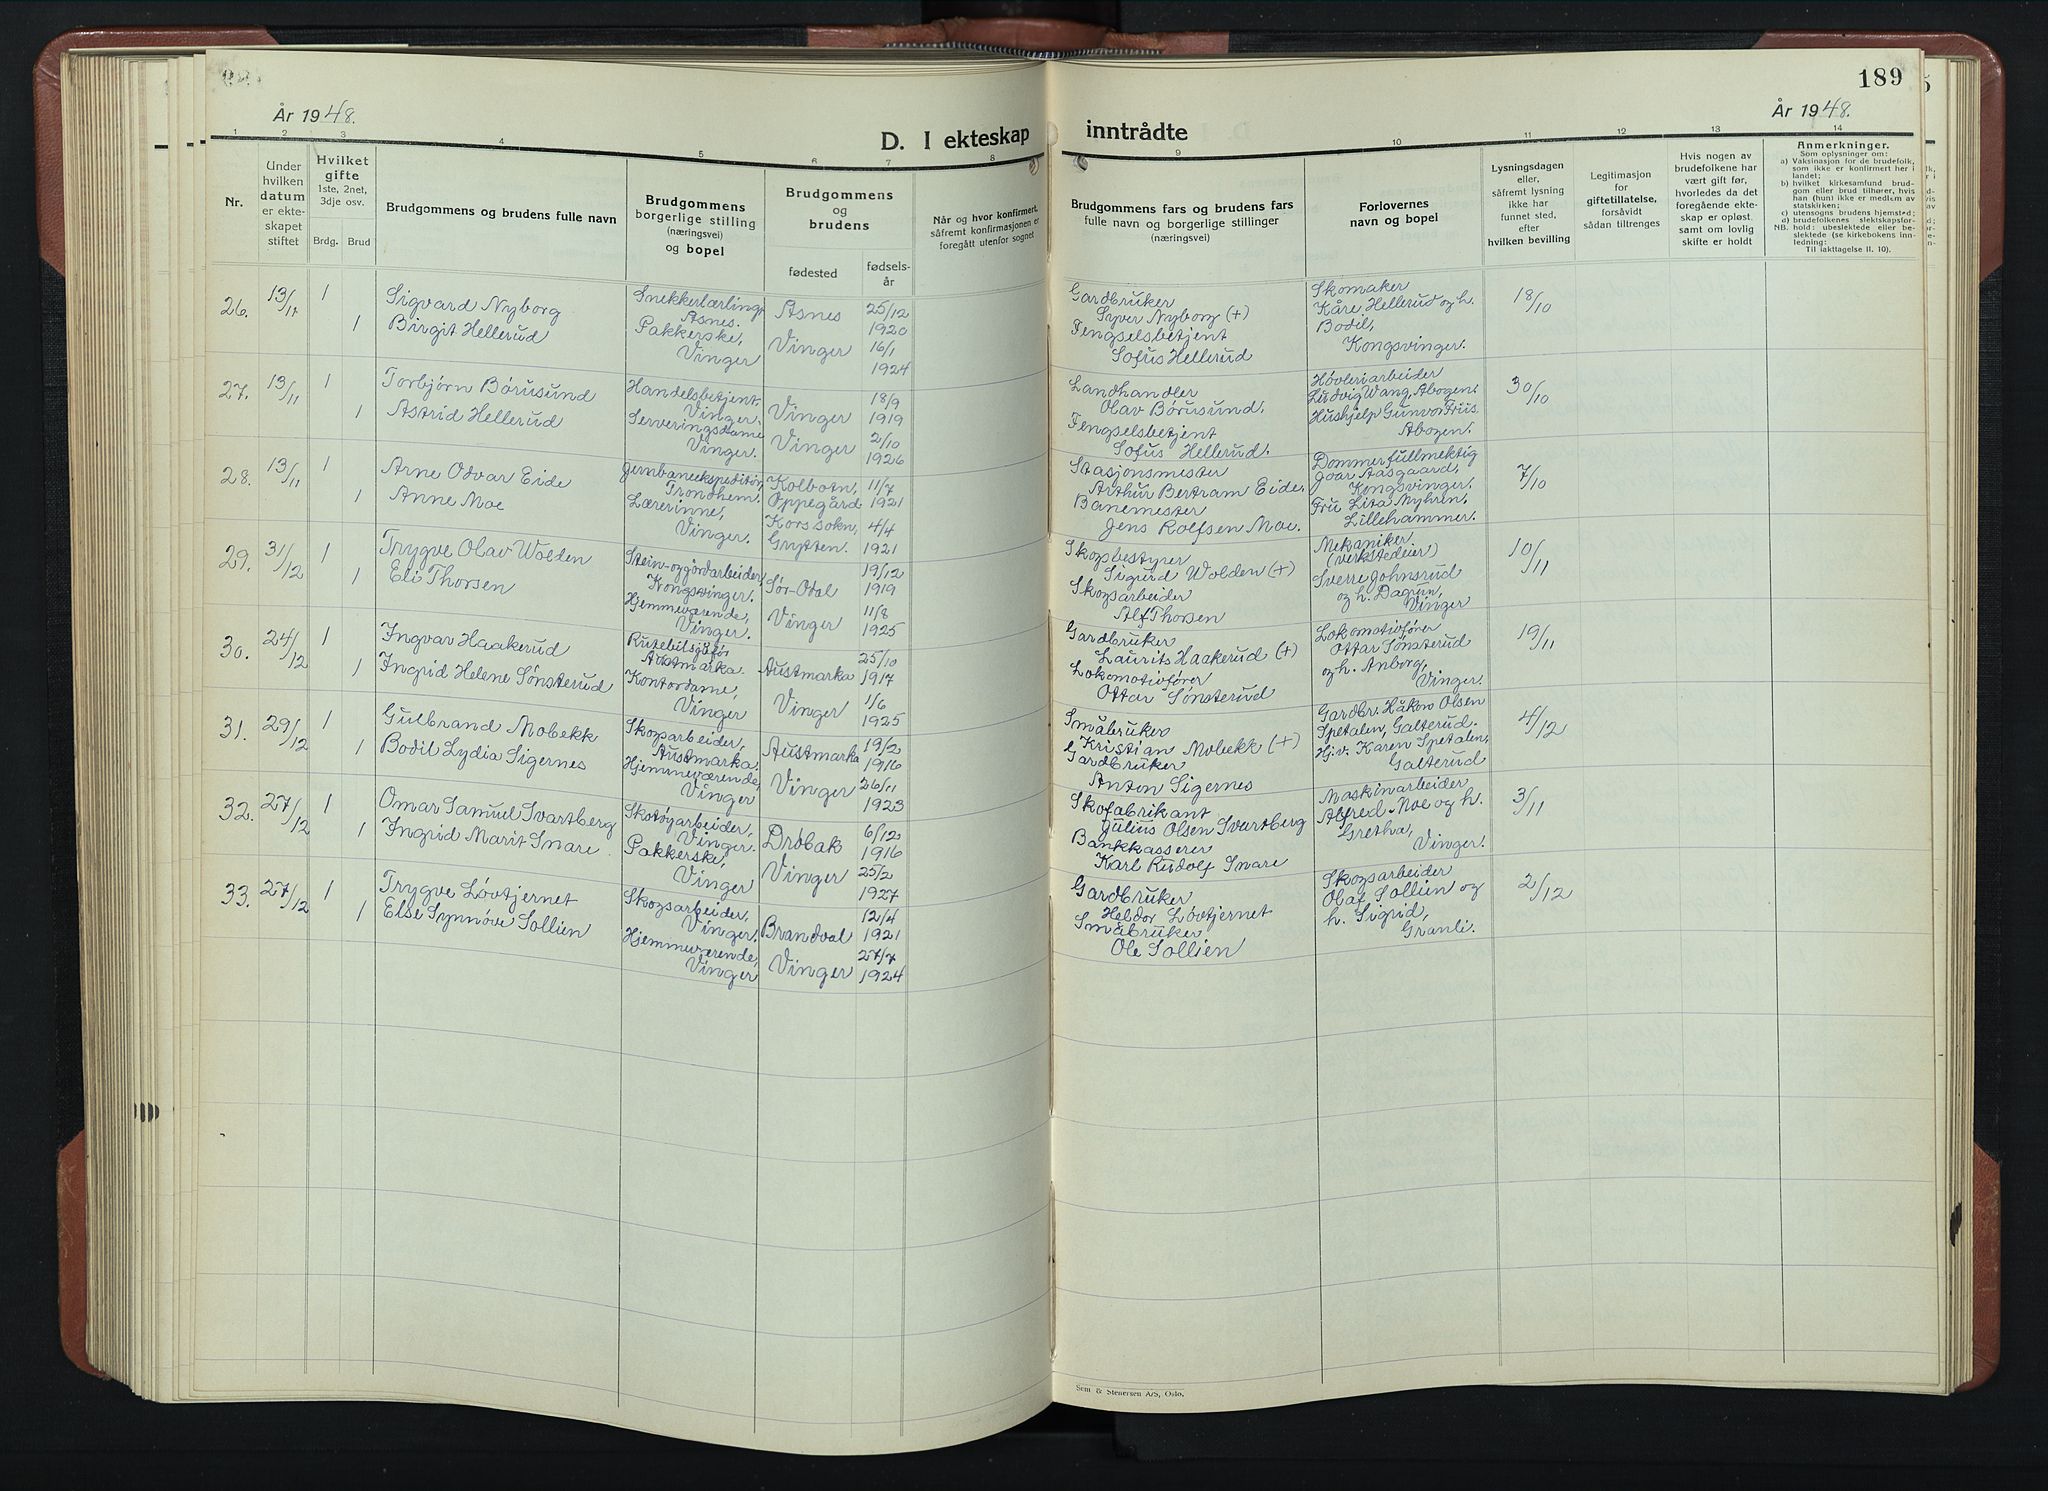 189
År 1948.
År 1948.
D. I ekteskap inntrådte
1 2 3 4 5 6 7 8 9 10 11 12 13 14
Nr.
Under
hvilken
datum
er ekte-
skapet
stiftet
Hvilket
gifte
1ste, 2net,
3dje osv.
Brdg. Brud
Brudgommens og brudens fulle navn
Brudgommens
borgerlige stilling
(næringsvei)
og bopel
Brudgommens
og
brudens
fødested
fødsels-
år
Når og hvor konfirmert,
såfremt konfirmasjonen er
foregått utenfor sognet
Brudgommens fars og brudens fars
fulle navn og borgerlige stillinger
(næringsvei)
Forlovernes
navn og bopel
Lysningsdagen
eller,
såfremt lysning
ikke har
funnet sted,
efter
hvilken bevilling
Legitimasjon
for
giftetillatelse,
forsåvidt
sådan tiltrenges
Hvis nogen av
brudefolkene har
vært gift før,
hvorledes da det
foregående ekte-
skap er opløst,
samt om lovlig
skifte er holdt
Anmerkninger.
Som oplysninger om:
a) Vaksinasjon for de brudefolk,
som ikke er konfirmert her i
landet;
b) hvilket kirkesamfund brud-
gom eller brud tilhører, hvis
han (hun) ikke er medlem av
statskirken;
c) utensogns brudens hjemsted;
d) brudefolkenes slektskapsford-
NB. hold: ubeslektede eller be-
slektede (se kirkebokens inn-
ledning:
Til iakttagelse II. 10).
26. 13/11 1
1
Sigvard Nyborg
Birgit Hellerud
Snekkerlærling,
Åsnes.
Pakkerske,
Vinger
Åsnes
Vinger
25/12
1920
16/1
1924
Gardbruker
Syver Nyborg (+)
Fengselsbetjent
Sofus Hellerud
Skomaker
Kåre Hellerud og h.
Bodil,
Kongsvinger.
18/10
27. 13/11 1
1
Torbjørn Børusund
Astrid Hellerud
Handelsbetjent,
Vinger.
Serveringsdame
Vinger.
Vinger
Vinger
18/9
1919
2/10
1926
Landhandler
Olav Børusund.
Fengselsbetjent
Sofus Hellerud.
Høvleriarbeider
Ludvig Wang, Åbogen.
Hushjelp Gunvor Friis
Åbogen.
30/10
28. 13/11 1
1
Arne Odvar Eide
Anne Moe
Jernbaneekspeditør,
Trondheim.
Lærerinne,
Vinger.
Kolbotn,
Oppegård
Kors sokn,
Grytten.
11/7
1921
4/4
1921
Stasjonsmester
Arthur Bertram Eide.
Banemester
Jens Rolfsen Moe.
Dommerfullmektig
Joar Aasgaard,
Kongsvinger.
Fru Lita Nyhrin,
Lillehammer.
7/10
29. 31/12 1
1
Trygve Olav Wolden
Eli Thorsen
Stein-og jordarbeider,
Kongsvinger.
Hjemmeværende,
Vinger.
Sør-Odal
Vinger
19/12
1919
11/8
1925
Skogbestyrer
Sigurd Wolden (+)
Skogsarbeider
Alf Thorsen
Mekaniker
(verkstedeier)
Sverre Johnsrud
og h. Dagrun,
Vinger
10/11
30. 24/12 1
1
Ingvar Haakerud
Ingrid Helene Sønsterud
Rutebilsjåfør
Austmarka.
Kontordame,
Vinger
Austmarka
Vinger
25/10
1917
1/6
1925
Gardbruker
Laurits Haakerud (+)
Lokomotivfører
Ottar Sønsterud
Lokomotivfører
Ottar Sønsterud
og h. Anborg,
Vinger.
19/11
31. 29/12 1
1
Gulbrand Mobekk
Bodil Lydia Sigernes
Skogsarbeider,
Austmarka
Hjemmeværende,
Vinger
Austmarka
Vinger
19/2
1916
26/11
1923
Småbruker
Kristian Mobekk (+)
Gardbruker
Anton Sigernes
Gardbr. Håkon Olsen
Spetalen, Galterud.
Hjv. Karen Spetalen,
Galterud
4/12
32. 27/12 1
1
Omar Samuel Svartberg
Ingrid Marit Snare
Skotøyarbeider,
Vinger.
Pakkerske,
Vinger
Drøbak
Vinger
6/12
1916
25/2
1927
Skofabrikant
Julius Olsen Svartberg
Bankkasserer
Karl Rudolf Snare
Maskinarbeider
Alfred Moe og h.
Gretha,
Vinger.
3/11
33. 27/12 1
1
Trygve Løvtjernet
Else Synnøve Sollien
Skogsarbeider,
Vinger.
Hjemmeværende,
Vinger
Brandval
Vinger
12/4
1921
27/7
1924
Gardbruker
Heldor Løvtjernet
Småbruker
Ole Sollien
Skogsarbeider
Olaf Sollien og
h. Sigrid,
Granli.
2/12
Sem & Stenersen A/S, Oslo.